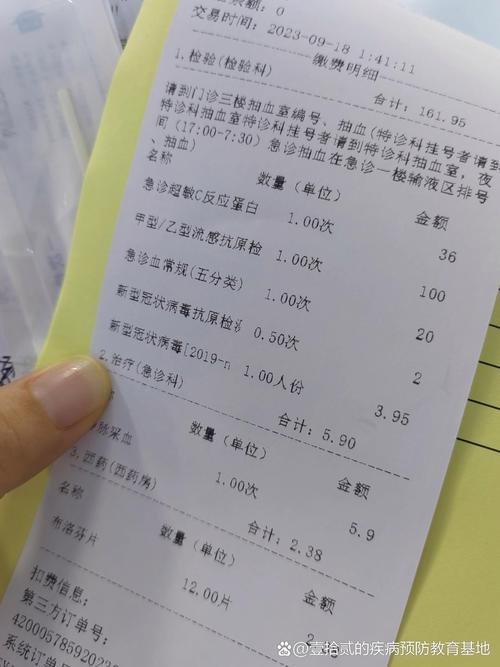 余额: 0
交易时间: 2023-09-18 1:41:11
缴费明细
1.检验(检验科)
合计: 161.95
请到门诊三楼抽血室编号、抽血(特诊科挂号者请到
特诊科抽血室特诊科挂号者请到特诊科抽血室, 夜
间(17:00-7:30)急诊抽血在急诊一楼输液区排号
、抽血)
名称 数量(单位) 金额
急诊超敏C反应蛋白 1.00次 36
甲型/乙型流感抗原检 1.00次 100
急诊血常规(五分类) 1.00次 20
新型冠状病毒抗原检 0.50次 2
新型冠状病毒[2019-n 1.00人份 3.95
2.治疗(急诊科) 合计: 5.90
数量(单位) 金额
脉采血 1.00次 5.9
3.西药(西药房) 合计: 2.38
名称 数量(单位) 金额
布洛芬片 12.00片
扣费信息:
第三方订单号:
42000578592023
系统订单
@壹拾贰的疾病预防教育基地